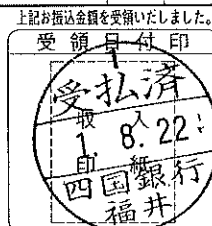 上記お振込金額を受領いたしました。
受領日付印
受払済
収入
1. 8. 22
印紙
四国銀行
福井